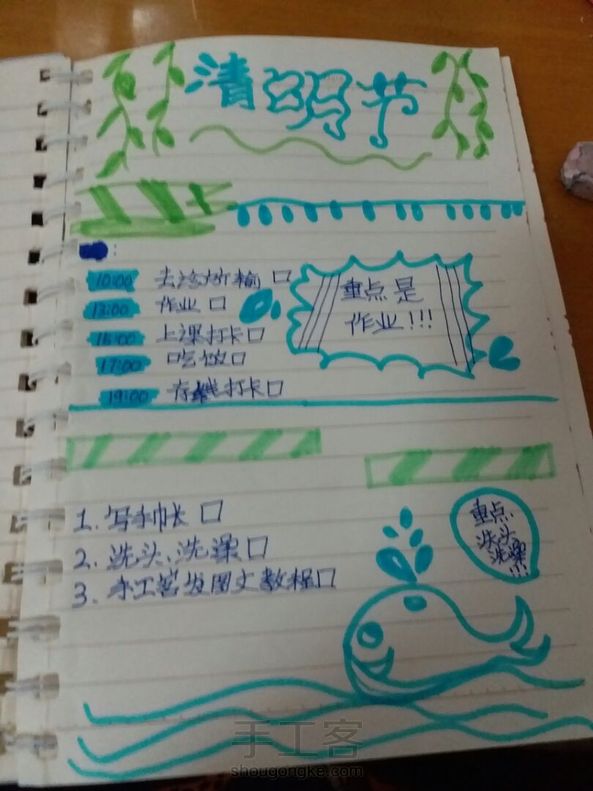 清明节
10:00 去诊所输 口
13:00 作业 口
重点是
作业!!!
16:00 上课打卡口
17:00 吃饭口
19:00 打卡口
1. 写手帐 口
2. 洗头、洗澡口
3. 手工客发图文教程口
重点、
洗头
洗澡
!!!
手工客
shougongke.com